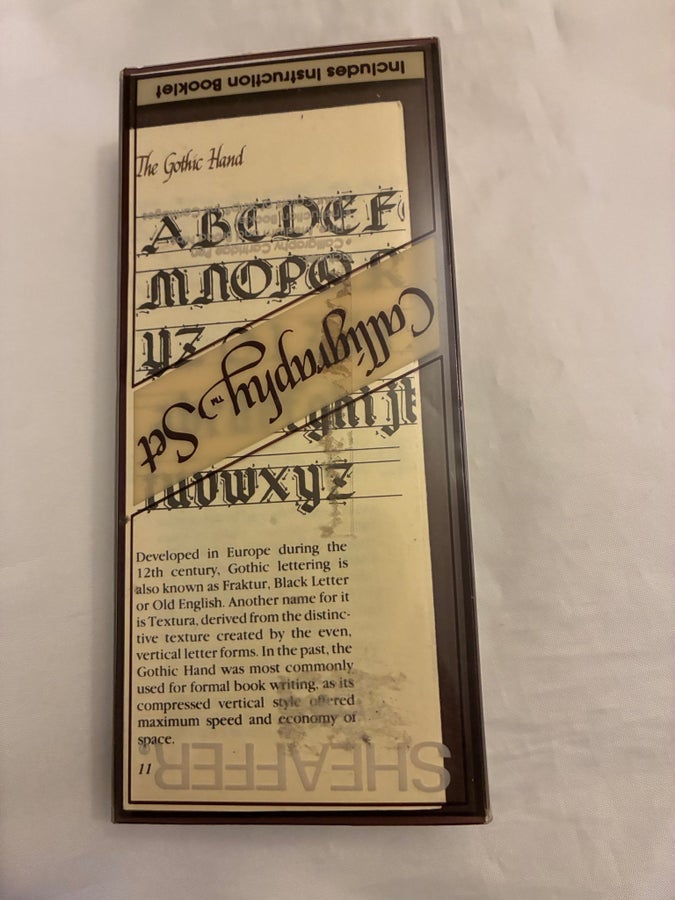 Includes Instruction Booklet
The Gothic Hand
ABCDEF
MNOPQ
yz
Calligraphy™ Set
uvwxyz
Developed in Europe during the
12th century, Gothic lettering is
also known as Fraktur, Black Letter
or Old English. Another name for it
is Textura, derived from the distinc-
tive texture created by the even,
vertical letter forms. In the past, the
Gothic Hand was most commonly
used for formal book writing, as its
compressed vertical style offered
maximum speed and economy of
space.
11
SHEAFFER®